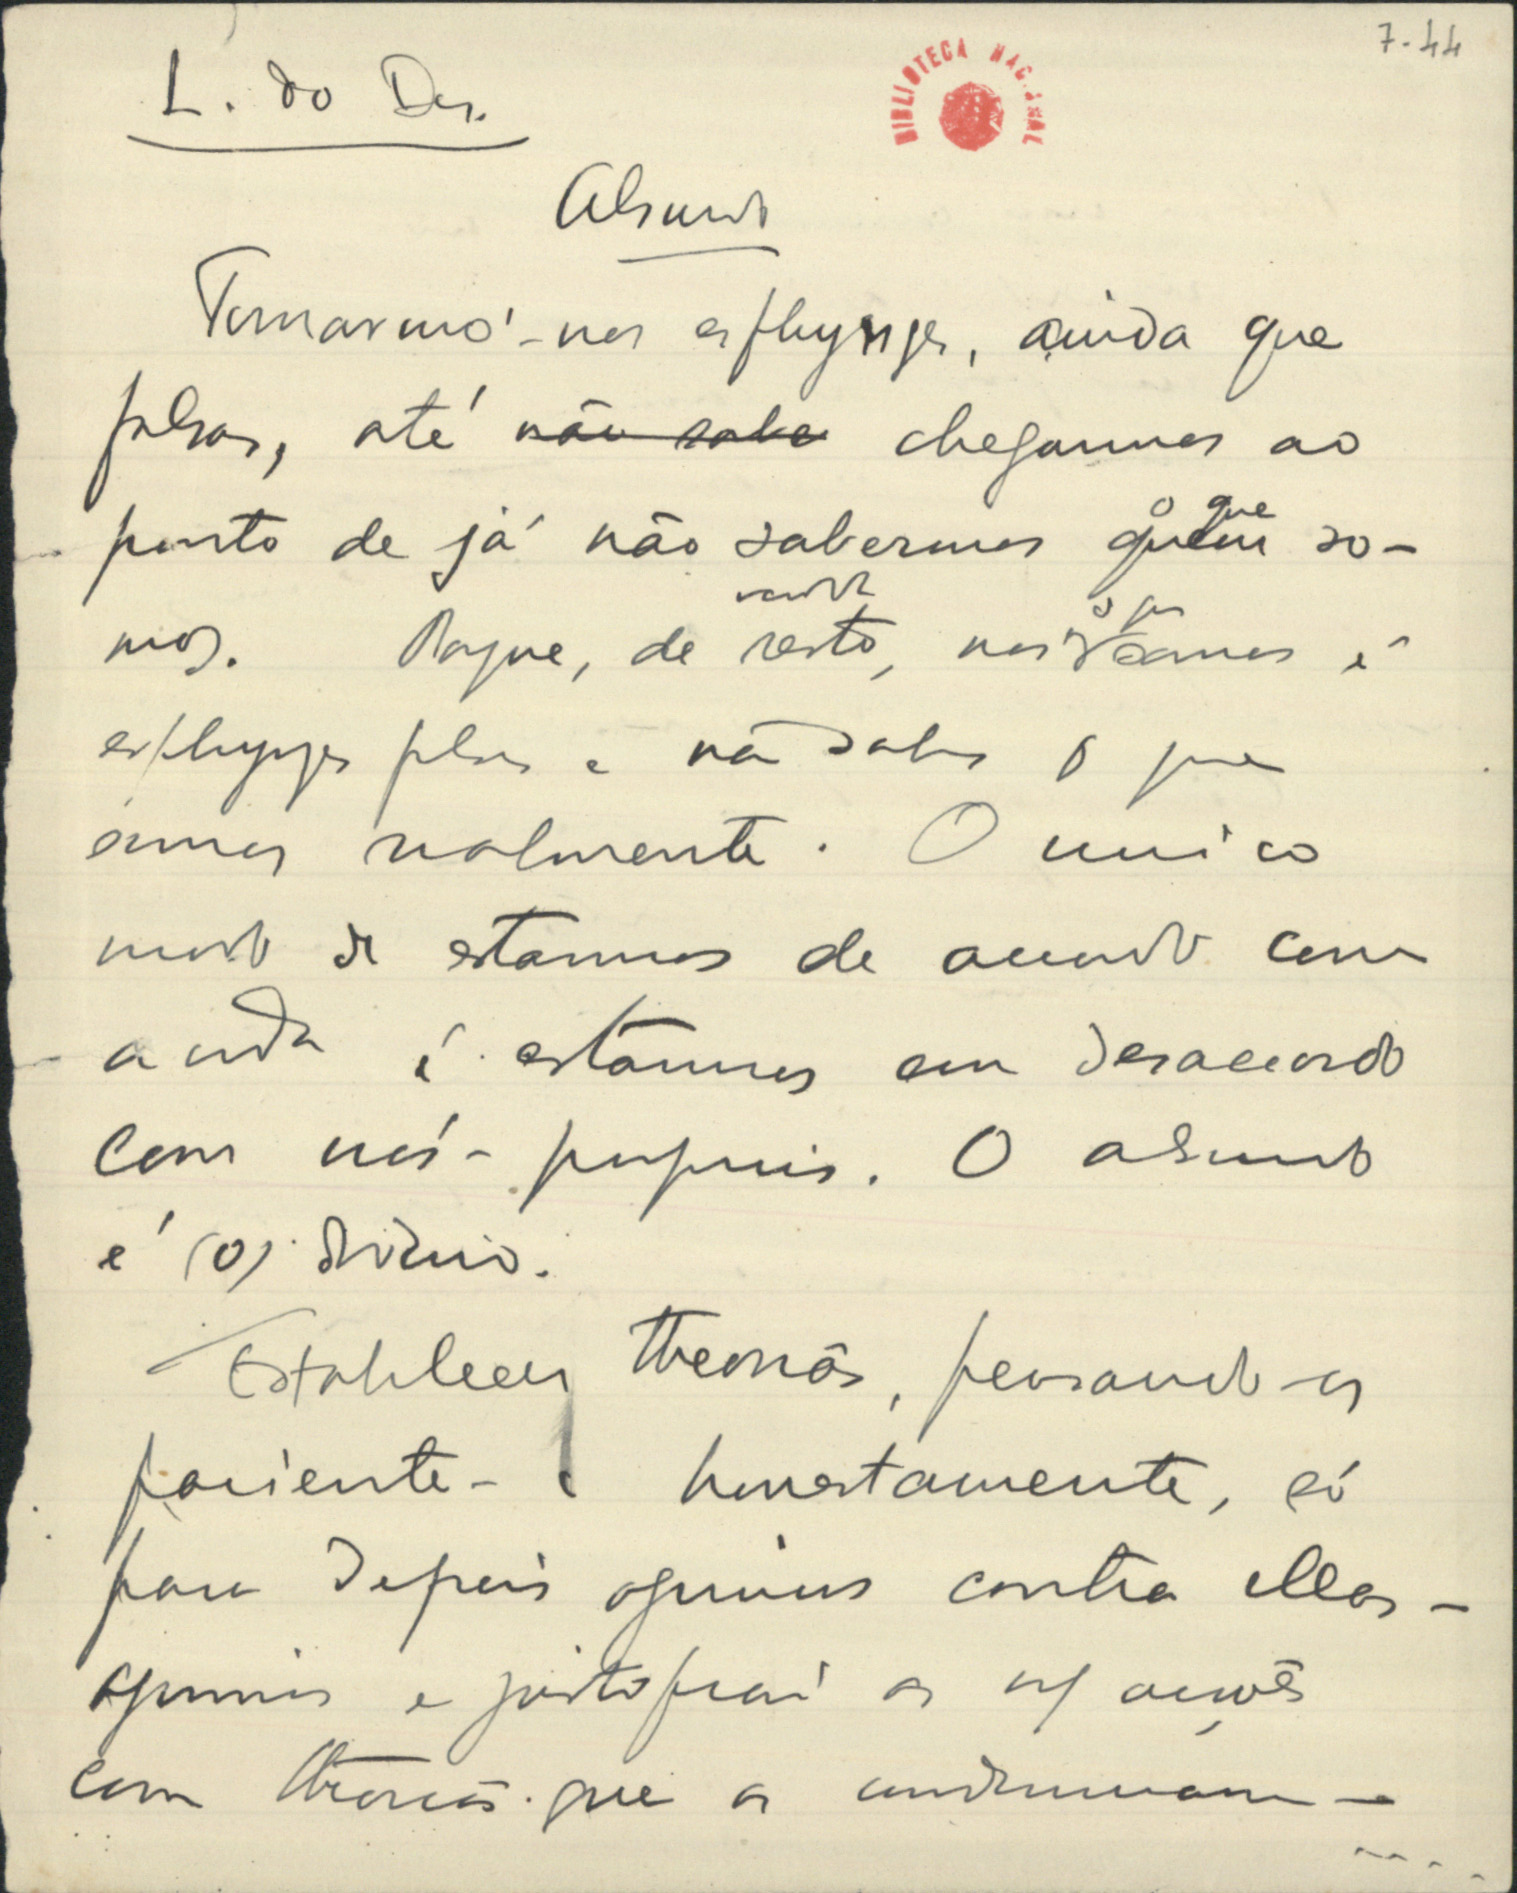 7-44
L. do Des.
BIBLIOTECA NACIONAL
Absurdo
Tornarmo'-nos esphynges, ainda que
falsas, até não sabe chegarmos ao
ponto de já não sabermos quem so-
o que
mos. Porque, de resto, nós somos é
verdade
o que
esphynges falsas e não sabemos o que
somos realmente. O unico
modo de estarmos de accordo com
a vida é estarmos em desaccordo
com nós-proprios. O absurdo
é (o) divino.
Estabelecer theorias, pensando-as
paciente- e honestamente, só
para depois agirmos contra ellas -
agirmos e justificar as nossas acções
com theorias que as condemnam -